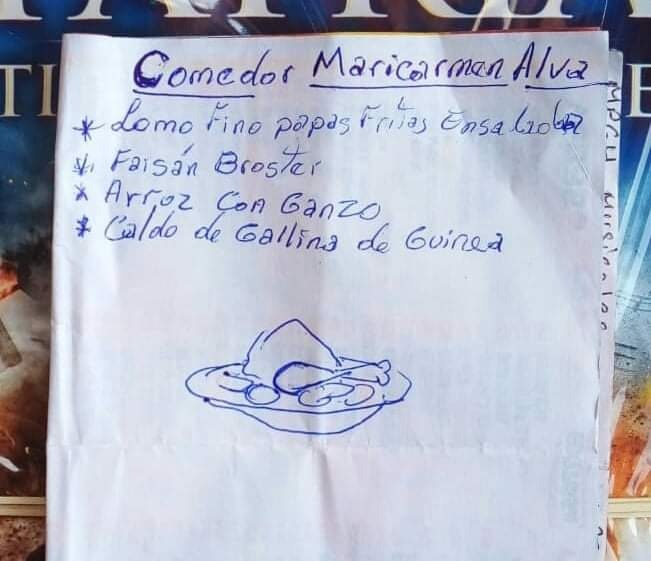 Comedor Maricarmen Alva
* Lomo Fino papas Fritas Ensalada
* Faisán Broster
* Arroz Con Ganzo
* Caldo de Gallina de Guinea